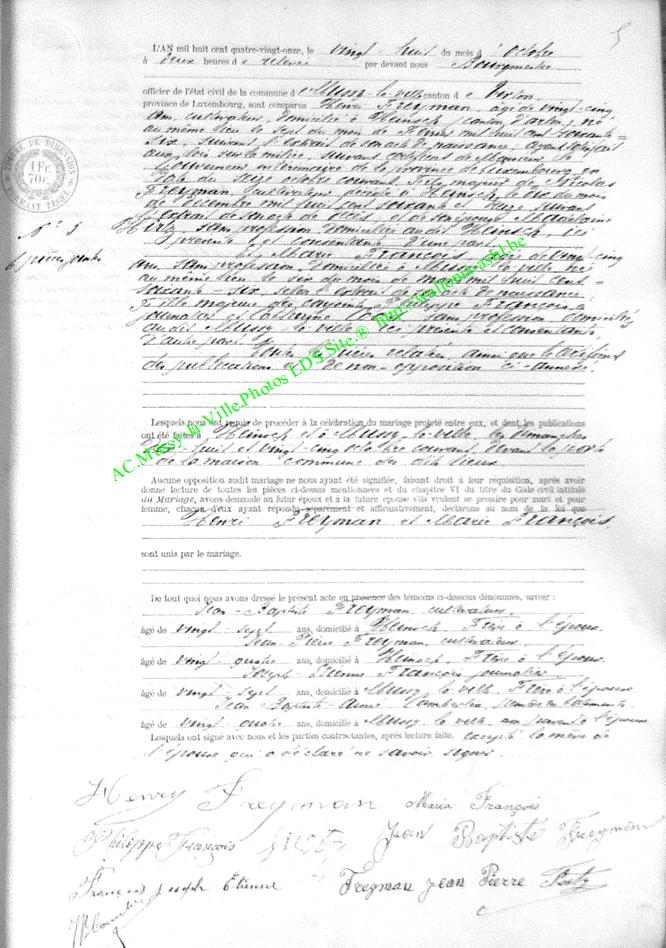 5
L'AN mil huit cent quatre-vingt-onze, le vingt-huit du mois d'octobre
à deux heures de relevée par devant nous Bourgmestre
officier de l'état civil de la commune de Mussy-la-ville canton de Virton,
province de Luxembourg, sont comparus Henri Freyman, âgé de vingt-cinq
ans, cultivateur, domicilié à Heinsch, canton d'Arlon, né
au même lieu le sept du mois de Février mil huit cent soixante-
six, suivant l'extrait de son acte de naissance; ayant satisfait
aux lois sur la milice, suivant certificat de Monsieur le
Gouverneur de la province de Luxembourg en
date du octobre courant, fils majeur de Nicolas
Freyman, cultivateur décédé à Heinsch, le du mois
de Décembre mil huit cent soixante et suivant
l'extrait de son acte de décès, et de son épouse Madelaine
Hirtz, sans profession domiciliée au dit Heinsch, ici
présente et consentante d'une part;
Et Marie François, âgée de vingt-cinq
ans, sans profession domiciliée à Mussy-la-ville née
au même lieu le six du mois de mars mil huit cent
soixante-six selon l'extrait de son acte de naissance,
fille majeure des Philippe François
journalier et Catherine sans profession domiciliés
au dit Mussy-la-ville, ici présents et consentants,
d'autre part;
Toutes les pièces relatées, ainsi que le certificat
des publications et de non-opposition ci-annexés.
N° 5
6 pièces jointes
TIMBRE DE DIMENSION
1 Fr.
70c.
FORMAAT ZEGEL
Lesquels nous ont requis de procéder à la célébration du mariage projeté entre eux, et dont les publications
ont été faites à Heinsch et à Mussy-la-ville, les dimanches
dix-huit et vingt-cinq octobre courant, devant la porte
de la maison commune des dits lieux.
Aucune opposition audit mariage ne nous ayant été signifiée, faisant droit à leur réquisition, après avoir
donné lecture de toutes les pièces ci-dessus mentionnées et du chapitre VI du titre du Code civil intitulé
du Mariage, avons demandé au futur époux et à la future épouse s'ils veulent se prendre pour mari et pour
femme, chacun d'eux ayant répondu séparément et affirmativement, déclarons au nom de la loi que
Henri Freyman et Marie François
sont unis par le mariage.
De tout quoi nous avons dressé le présent acte en présence des témoins ci-dessous dénommés, savoir :
Jean-Baptiste Freyman cultivateur,
âgé de vingt-sept ans, domicilié à Heinsch, Frère à l'époux.
Jean-Pierre Freyman cultivateur
âgé de vingt-quatre ans, domicilié à Heinsch, Frère à l'époux.
Joseph-Etienne François journalier
âgé de vingt-sept ans, domicilié à Mussy-la-ville, Frère à l'épouse
Jean-Baptiste
âgé de vingt-quatre ans, domicilié à Mussy-la-ville, non parent à l'épouse
Lesquels ont signé avec nous et les parties contractantes, après lecture faite. excepté la mère de
l'épouse qui a déclaré ne savoir signer.
Henry Freyman Maria François
Philippe François Jean Baptiste Freyman
François Joseph Etienne Freyman Jean Pierre
AC.Mussy-la-Ville.Photos EDS Site.® http://wallonia-asbl.be